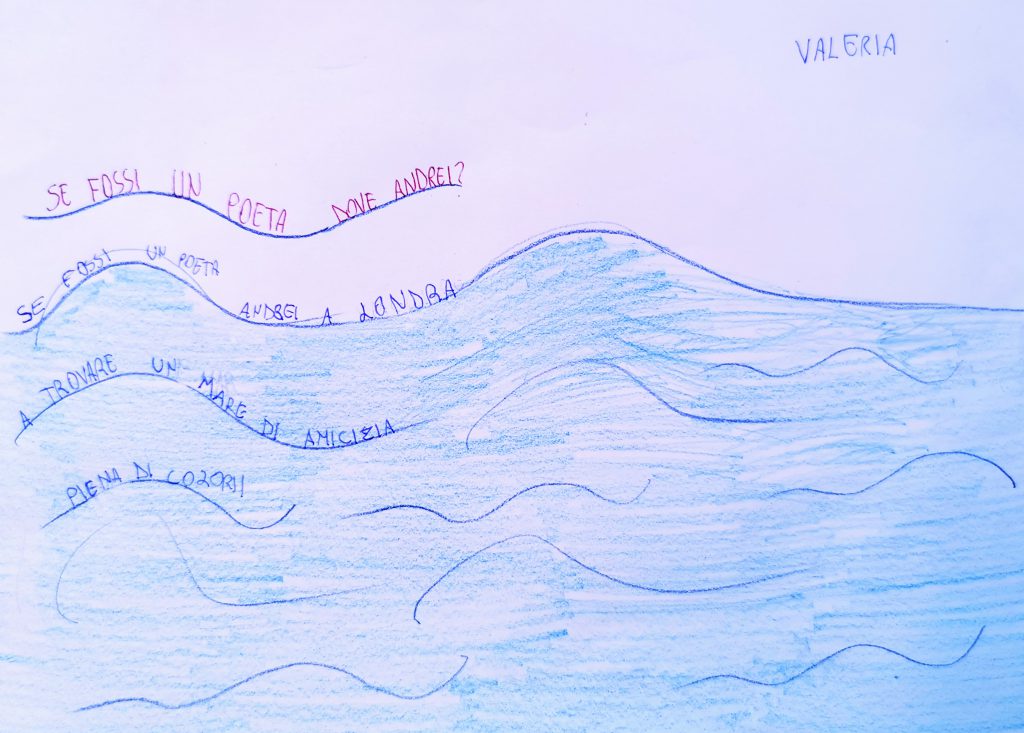 VALERIA
SE FOSSI UN POETA DOVE ANDREI?
SE FOSSI UN POETA
ANDREI A LONDRA
A TROVARE UN MARE DI AMICIZIA
PIENA DI COLORI!